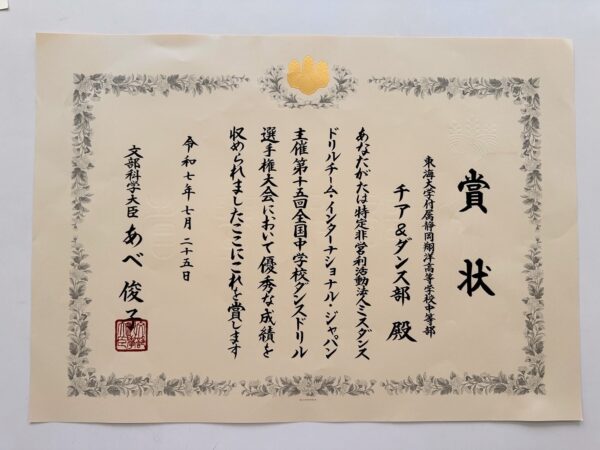 賞状
東海大学付属静岡翔洋高等学校中等部
チア&ダンス部 殿
あなたがたは特定非営利活動法人ミスダンス
ドリルチーム・インターナショナル・ジャパン
主催第十五回全国中学校ダンスドリル
選手権大会において優秀な成績を
収められましたここにこれを賞します
令和七年七月二十五日
文部科学大臣 あべ 俊子